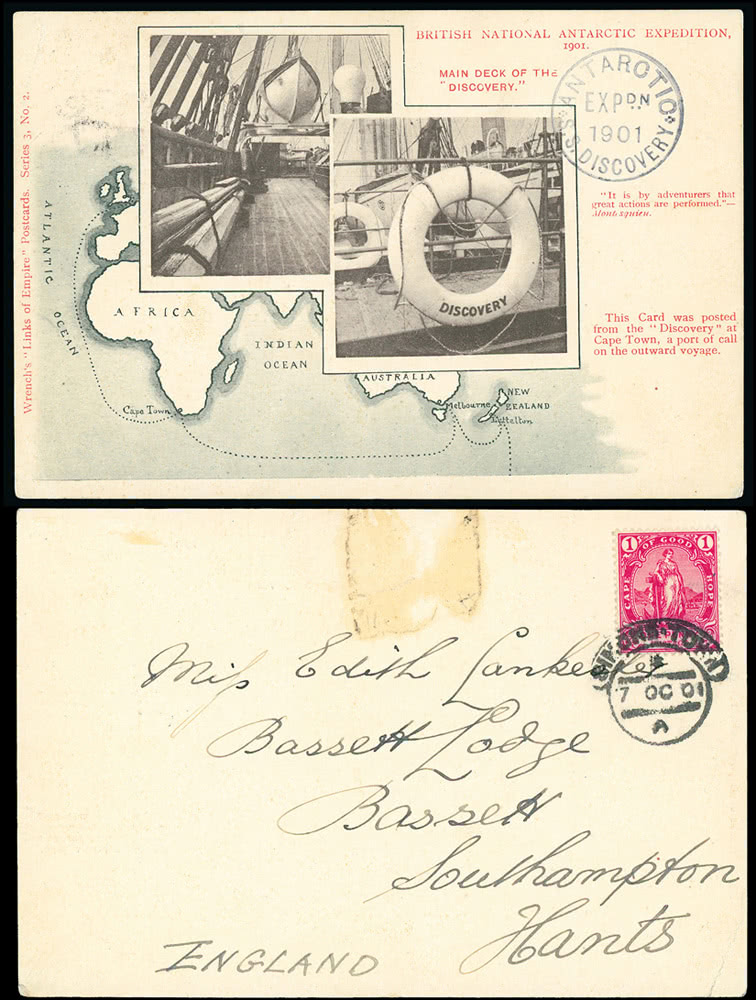 BRITISH NATIONAL ANTARCTIC EXPEDITION,
1901.
MAIN DECK OF THE
"DISCOVERY."
ANTARCTIC
EXPDN
1901
S.S. DISCOVERY
Wrench's "Links of Empire" Postcards. Series 3, No. 2.
"It is by adventurers that
great actions are performed."—
Montesquieu.
DISCOVERY
This Card was posted
from the "Discovery" at
Cape Town, a port of call
on the outward voyage.
ATLANTIC
OCEAN
AFRICA
INDIAN
OCEAN
AUSTRALIA
Cape Town
Melbourne
NEW
ZEALAND
Lyttelton
1 1
CAPE OF GOOD HOPE
SIMONS-TOWN
7 OC 01
A
Miss Edith Lankester
Bassett Lodge
Bassett
Southampton
Hants
ENGLAND